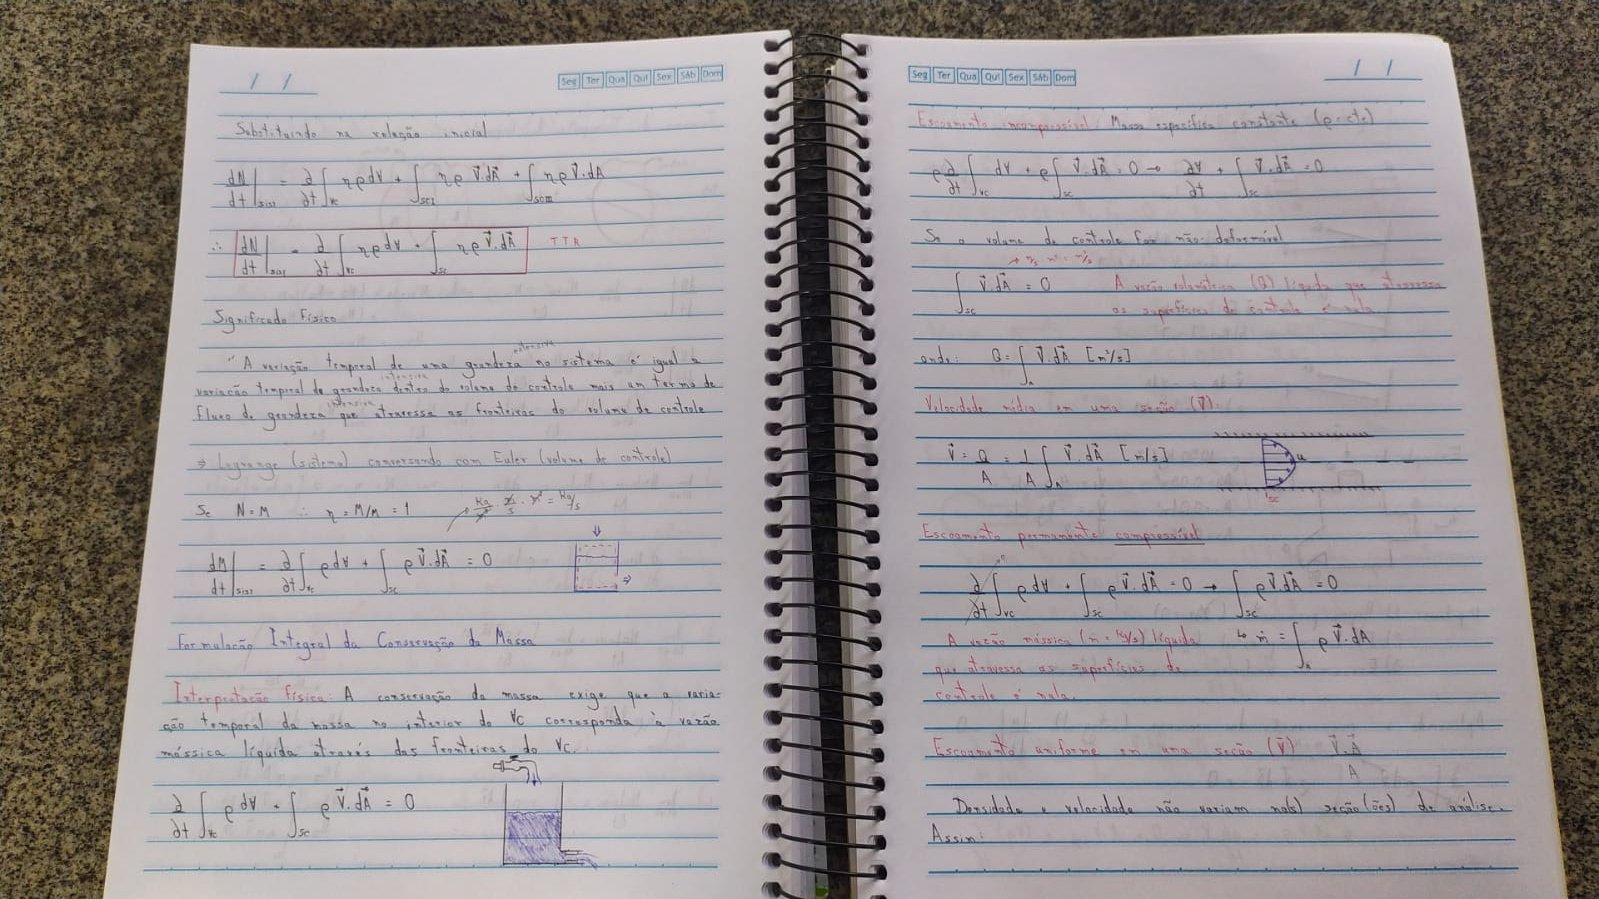 / /
Seg Ter Qua Qui Sex Sáb Dom
Substituindo na relação inicial
dN/dt|sist = ∂/∂t ∫vc ηρ dV + ∫sc1 ηρ V⃗.dA⃗ + ∫ ηρ V⃗.dA
∴ dN/dt|sist = ∂/∂t ∫vc ηρ dV + ∫sc ηρ V⃗.dA⃗ TTR
Significado Físico
extensiva
"A variação temporal de uma grandeza no sistema é igual a
intensiva
variação temporal da grandeza dentro do volume de controle mais um termo de
intensiva
fluxo de grandeza que atravessa as fronteiras do volume de controle
⇒ Lagrange (sistema) conversando com Euler (volume de controle)
Se N = M ∴ η = M/M = 1 kg/m³ . m/s . m² = kg/s
dM/dt|sist = ∂/∂t ∫vc ρ dV + ∫sc ρ V⃗.dA⃗ = 0
Formulação Integral da Conservação da Massa
Interpretação Física: A conservação da massa exige que a varia-
ção temporal da massa no interior do VC corresponda à vazão
mássica líquida através das fronteiras do VC.
∂/∂t ∫vc ρ dV + ∫sc ρ V⃗.dA⃗ = 0
Seg Ter Qua Qui Sex Sáb Dom
/ /
Escoamento incompressível: Massa específica constante (ρ = cte)
ρ ∂/∂t ∫vc dV + ρ ∫sc V⃗.dA⃗ = 0 → ∂V/∂t + ∫sc V⃗.dA⃗ = 0
Se o volume de controle for não-deformável
→ m/s m² = m³/s
∫sc V⃗.dA⃗ = 0 A vazão volumétrica (Q) líquida que atravessa
as superfícies de controle é nula.
onde: Q = ∫A V⃗.dA⃗ [m³/s]
Velocidade média em uma seção (V̄):
V̄ = Q/A = 1/A ∫A V⃗.dA⃗ [m/s]
u
sc
Escoamento permanente compressível
0
∂/∂t ∫vc ρ dV + ∫sc ρ V⃗.dA⃗ = 0 → ∫sc ρ V⃗.dA⃗ = 0
A vazão mássica (ṁ = kg/s) líquida ↳ ṁ = ∫A ρ V⃗.dA
que atravessa as superfícies de
controle é nula.
Escoamento uniforme em uma seção (V̄) V⃗.A⃗
A
Densidade e velocidade não variam na(s) seção(ões) de análise.
Assim: